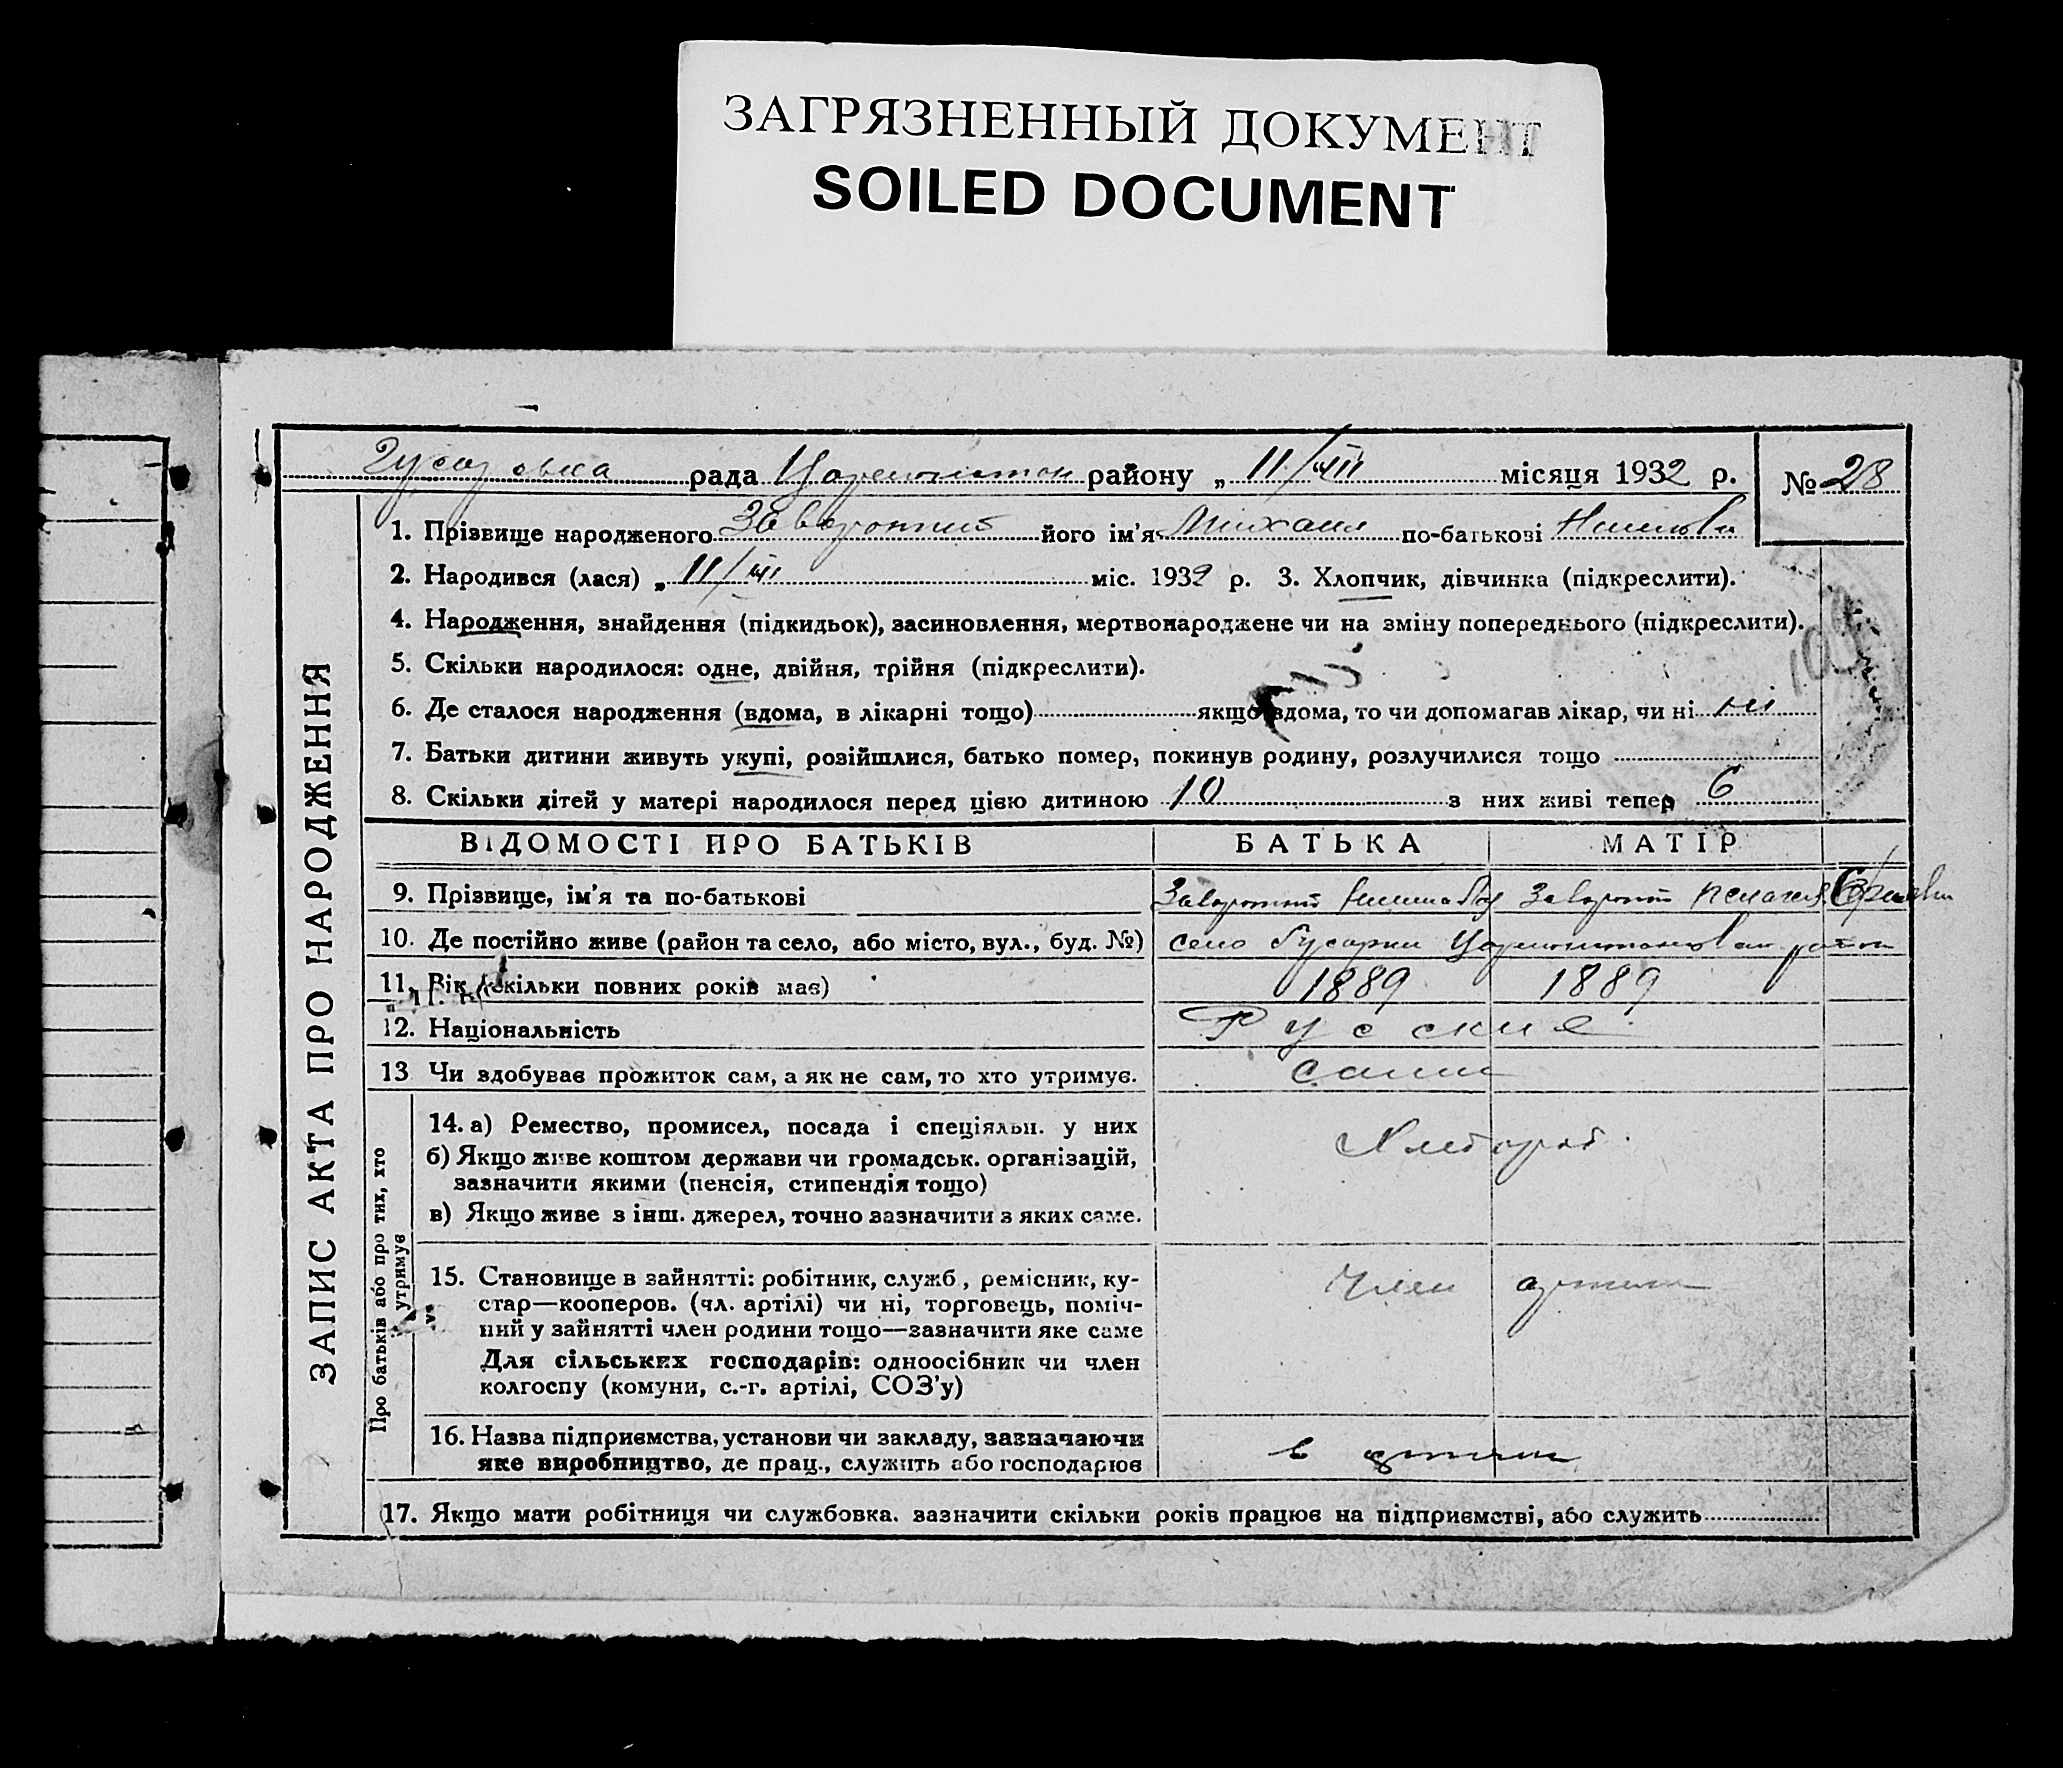 ЗАГРЯЗНЕННЫЙ ДОКУМЕНТ
SOILED DOCUMENT
рада району „ 11/III місяця 1932 р. № 28
ЗАПИС АКТА ПРО НАРОДЖЕННЯ
1. Прізвище народженого його ім'я Михаил по-батькові
2. Народився (лася) „ 11/III міс. 1932 р. 3. Хлопчик, дівчинка (підкреслити).
4. Народження, знайдення (підкидьок), засиновлення, мертвонароджене чи на зміну попереднього (підкреслити).
5. Скільки народилося: одне, двійня, трійня (підкреслити).
6. Де сталося народження (вдома, в лікарні тощо) якщо вдома, то чи допомагав лікар, чи ні ні
7. Батьки дитини живуть укупі, розійшлися, батько помер, покинув родину, розлучилися тощо
8. Скільки дітей у матері народилося перед цією дитиною 10 з них живі тепер 6
ВІДОМОСТІ ПРО БАТЬКІВ БАТЬКА МАТІР
9. Прізвище, ім'я та по-батькові
10. Де постійно живе (район та село, або місто, вул., буд. №) село
11. Вік (скільки повних років має) 1889 1889
12. Національність Русские
13 Чи здобуває прожиток сам, а як не сам, то хто утримує. сами
Про батьків або про тих, хто утримує
14. а) Ремество, промисел, посада і спеціяльн. у них Хлебороб
б) Якщо живе коштом держави чи громадськ. організацій,
зазначити якими (пенсія, стипендія тощо)
в) Якщо живе з інш. джерел, точно зазначити з яких саме.
15. Становище в зайнятті: робітник, служб., ремісник, ку-
стар—кооперов. (чл. артілі) чи ні, торговець, поміч-
ний у зайнятті член родини тощо—зазначити яке саме
Для сільських господарів: одноосібник чи член
колгоспу (комуни, с.-г. артілі, СОЗ'у)
Член артели
16. Назва підприємства, установи чи закладу, зазначаючи
яке виробництво, де прац., служить або господарює
в артели
17. Якщо мати робітниця чи службовка. зазначити скільки років працює на підприємстві, або служить